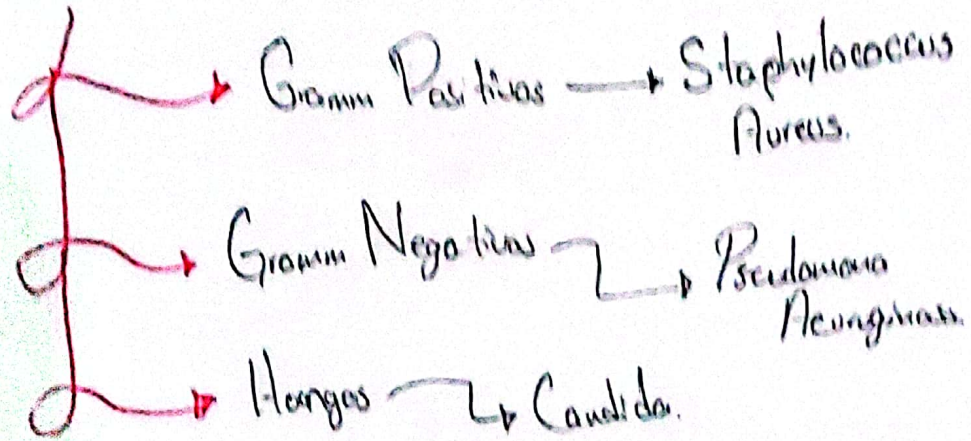 Gramm Positivos → Staphylococcus
Aureus.
Gramm Negativos → Pseudomona
Aeuroginosa.
Hongos → Candida.